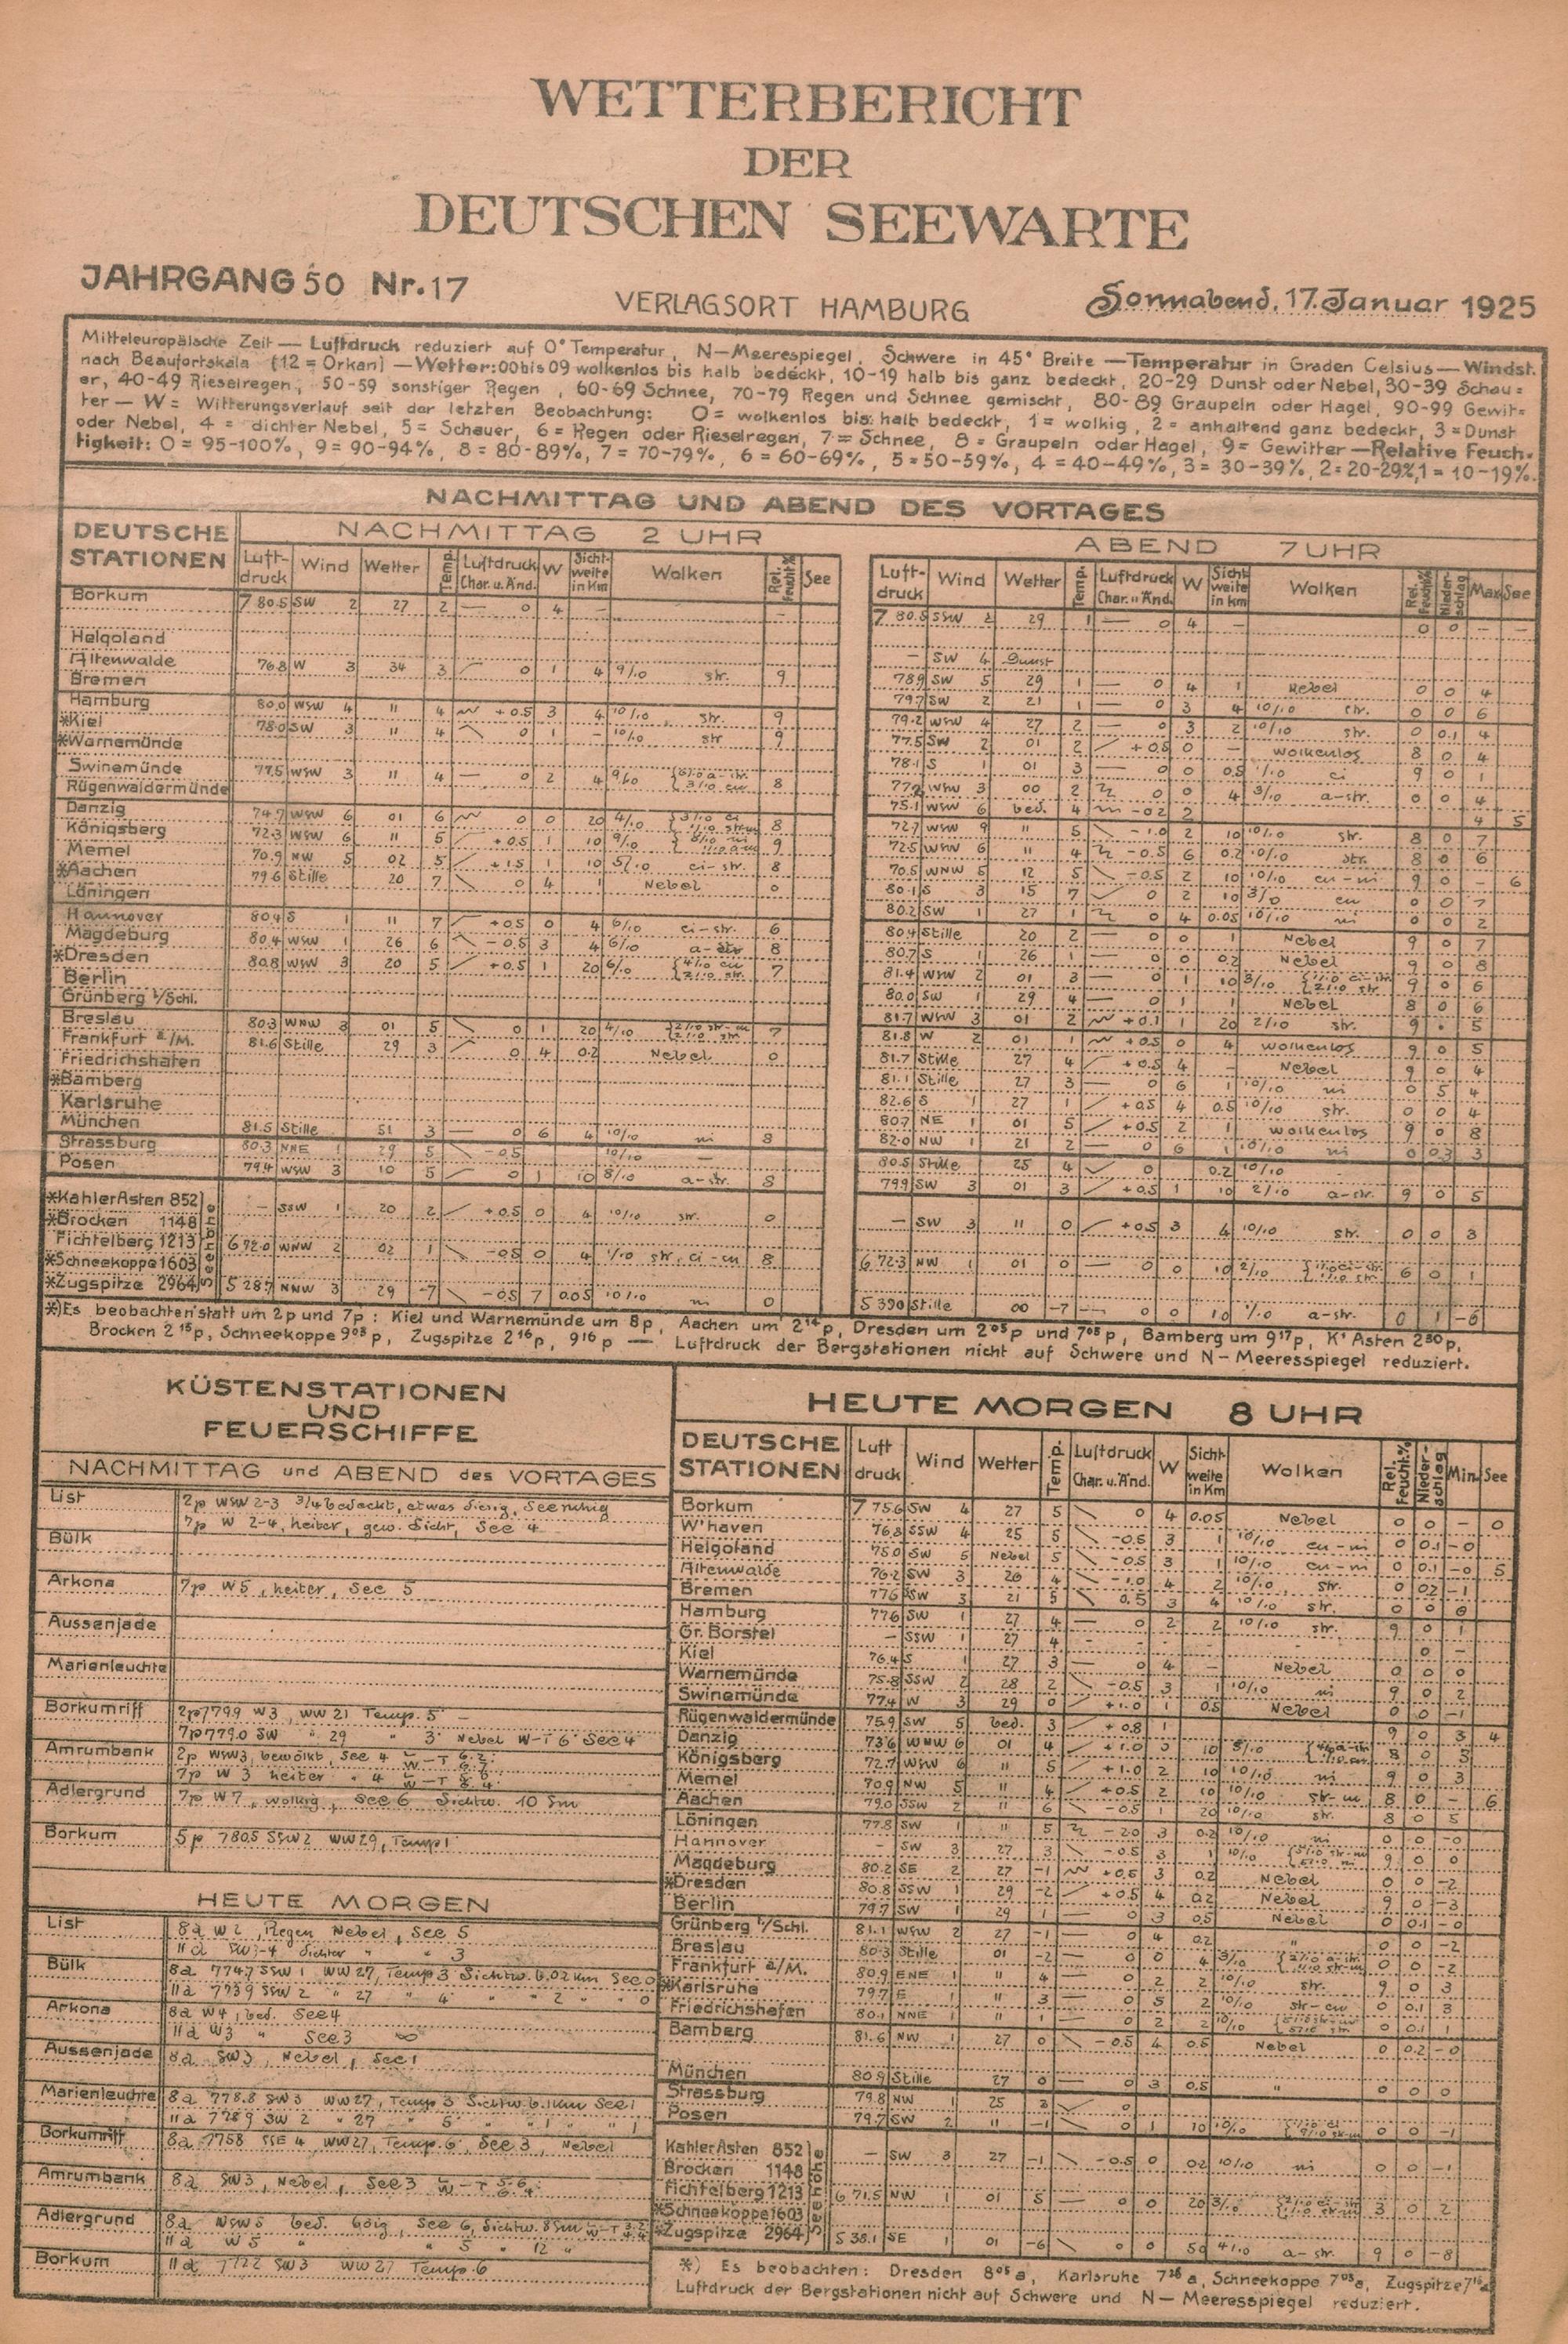 WETTERBERICHT
DER
DEUTSCHEN SEEWARTE
JAHRGANG 50 Nr. 17
VERLAGSORT HAMBURG
Sonnabend, 17. Januar 1925
Mitteleuropäische Zeit — Luftdruck reduziert auf 0° Temperatur, N—Meerespiegel, Schwere in 45° Breite — Temperatur in Graden Celsius — Windst.
nach Beaufortskala (12 = Orkan) — Wetter: 00 bis 09 wolkenlos bis halb bedeckt, 10-19 halb bis ganz bedeckt, 20-29 Dunst oder Nebel, 30-39 Schau=
er, 40-49 Rieselregen, 50-59 sonstiger Regen, 60-69 Schnee, 70-79 Regen und Schnee gemischt, 80-89 Graupeln oder Hagel, 90-99 Gewit=
ter — W = Witterungsverlauf seit der letzten Beobachtung: 0 = wolkenlos bis halb bedeckt, 1 = wolkig, 2 = anhaltend ganz bedeckt, 3 = Dunst
oder Nebel, 4 = dichter Nebel, 5 = Schauer, 6 = Regen oder Rieselregen, 7 = Schnee, 8 = Graupeln oder Hagel, 9 = Gewitter — Relative Feuch=
tigkeit: 0 = 95-100%, 9 = 90-94%, 8 = 80-89%, 7 = 70-79%, 6 = 60-69%, 5 = 50-59%, 4 = 40-49%, 3 = 30-39%, 2 = 20-29%, 1 = 10-19%.
NACHMITTAG UND ABEND DES VORTAGES
DEUTSCHE STATIONEN
NACHMITTAG 2 UHR
Luft-druck Wind Wetter Temp. Luftdruck Char. u. Änd. W Sicht-weite in Km Wolken Rel. Feucht% See
ABEND 7 UHR
Luft-druck Wind Wetter Temp. Luftdruck Char. u. Änd. W Sicht-weite in km Wolken Rel. Feucht% Nieder-schlag Max See
Borkum 7 80.5 SW 2 27 2 — 0 4 —
Helgoland
Altenwalde
Bremen 76.8 W 3 34 3 0 1 4 9/10 str. 9
Hamburg 80.0 WSW 4 11 4 +0.5 3 4 10/10 str. 9
*Kiel 78.0 SW 3 11 4 0 1 — 10/10 str 9
*Warnemünde
Swinemünde 77.5 WSW 3 11 4 — 0 2 4 8
Rügenwaldermünde
Danzig 74.7 WSW 6 01 6 0 0 20 4/10 8
Königsberg 72.3 WSW 6 11 5 +0.5 1 10 9/10 9
Memel 70.9 NW 5 02 5 +1.5 1 10 5/10 ci-str. 8
*Aachen 79.6 Stille 20 7 0 4 1 Nebel 0
Löningen
Hannover 80.4 S 1 11 7 +0.5 0 4 6/10 ci-str. 6
Magdeburg 80.4 WSW 1 26 6 -0.5 3 4 6/10 a-str 8
*Dresden 80.8 WSW 3 20 5 +0.5 1 20 6/10 7
Berlin
Grünberg i/Schl.
Breslau 80.3 WNW 3 01 5 0 1 20 4/10 7
Frankfurt a/M. 81.6 Stille 29 3 0 4 0.2 Nebel 0
Friedrichshafen
*Bamberg
Karlsruhe
München 81.5 Stille 51 3 — 0 6 4 10/10 ni 8
Strassburg 80.3 NNE 1 29 5 -0.5 10/10 —
Posen 79.4 WSW 3 10 5 0 1 10 8/10 a-str. 8
Seehöhe
*Kahler Asten 852 — SSW 1 20 2 +0.5 0 4 10/10 str. 0
*Brocken 1148
Fichtelberg 1213 6 72.0 WNW 2 02 1 -0.5 0 4 1/10 str, ci-cu 8
*Schneekoppe 1603
*Zugspitze 2964 5 28.7 NNW 3 29 -7 -0.5 7 0.05 10/10 ni 0
7 80.5 SSW 2 29 1 — 0 4 — 0 0 — —
— SW 4 Dunst
78.9 SW 5 29 1 — 0 4 1 Nebel 0 0 4
79.7 SW 2 21 1 — 0 3 4 10/10 str. 0 0 6
79.2 WSW 4 27 2 — 0 3 2 10/10 str. 0 0.1 4
77.5 SW 2 01 2 +0.5 0 — wolkenlos 8 0 4
78.1 S 1 01 3 — 0 0 0.5 1/10 ci 9 0 1
3 00 2 0 0 4 3/10 a-str. 0 0 4
75.1 WSW 6 bed. 4 -0.2 2 4 5
72.7 WSW 9 " 5 -1.0 2 10 10/10 str. 8 0 7
72.5 WSW 6 " 4 -0.5 6 0.2 10/10 str. 8 0 6
70.5 WNW 5 12 5 -0.5 2 10 10/10 cu-ni 9 0 — 6
80.1 S 3 15 7 0 2 10 cu 0 0 7
80.2 SW 1 27 1 0 4 0.05 10/10 ni 0 0 2
80.4 Stille 20 2 — 0 0 1 Nebel 9 0 7
80.7 S 1 26 1 — 0 0 0.2 Nebel 9 0 8
81.4 WSW 2 01 3 — 0 1 10 3/10 9 0 6
80.0 SW 1 29 4 — 0 1 1 Nebel 8 0 6
81.7 WSW 3 01 2 +0.1 1 20 2/10 str. 9 • 5
81.8 W 2 01 1 +0.5 0 4 wolkenlos 9 0 5
81.7 Stille 27 4 +0.5 4 — Nebel 9 0 4
81.1 Stille 27 3 — 0 6 1 10/10 ni 0 5 4
82.6 S 1 27 1 +0.5 4 0.5 10/10 str. 0 0 4
80.7 NE 1 01 5 +0.5 2 1 wolkenlos 9 0 8
82.0 NW 1 21 2 — 0 6 1 10/10 ni 0 0.3 3
80.5 Stille 25 4 0 0.2 10/10 —
79.9 SW 3 01 3 +0.5 1 10 2/10 a-str. 9 0 5
— SW 3 11 0 +0.5 3 4 10/10 str. 0 0 3
6 72.3 NW 1 01 0 — 0 0 10 2/10 6 0 1
5 39.0 Stille 00 -7 — 0 0 10 1/10 a-str. 0 1 -6
*) Es beobachten statt um 2p und 7p: Kiel und Warnemünde um 8p, Aachen um 2¹⁴p, Dresden um 2⁰⁵p und 7⁰⁵p, Bamberg um 9¹⁷p, K' Asten 2³⁰p,
Brocken 2¹⁵p, Schneekoppe 9⁰⁵p, Zugspitze 2¹⁶p, 9¹⁶p — Luftdruck der Bergstationen nicht auf Schwere und N—Meeresspiegel reduziert.
KÜSTENSTATIONEN
UND
FEUERSCHIFFE
NACHMITTAG und ABEND des VORTAGES
List 2p WSW 2-3 3/4 bedeckt, etwas diesig, See ruhig
7p W 2-4, heiter, gew. Sicht, See 4
Bülk
Arkona 7p W5, heiter, See 5
Aussenjade
Marienleuchte
Borkumriff 2p 779.9 W3, WW 21 Temp. 5 —
7p 779.0 SW " 29 " 3 Nebel W-T 6 See 4
Amrumbank 2p WSW3, bewölkt, See 4
7p W 3 heiter " 4
Adlergrund 7p W7, wolkig, See 6 Sichtw. 10 Sm
Borkum 5p 780.5 SSW2 WW29, Temp 1
HEUTE MORGEN
List 8a W 2, Regen Nebel, See 5
11a SW 3-4 dichter " " 3
Bülk 8a 774.7 SSW 1 WW 27, Temp. 3 Sichtw. 0.02 km See 0
11a 773.9 SSW 2 " 27 " 4 " " 2 " " 0
Arkona 8a W4, bed. See 4
11a W3 " See 3 ∞
Aussenjade 8a SW3, Nebel, See 1
Marienleuchte 8a 778.8 SW3 WW 27, Temp 3 Sichtw. 0.1 km See 1
11a 778.9 SW 2 " 27 " 5 " " 1 " " 1
Borkumriff 8a 775.8 SSE 4 WW 27, Temp. 6, See 3, Nebel
Amrumbank 8a SW3, Nebel, See 3
Adlergrund 8a WSW 5 bed. böig, See 6, Sichtw. 8 Sm
11a W 5 " " 5 " 12 "
Borkum 11a 772.2 SW3 WW 27 Temp. 6
HEUTE MORGEN 8 UHR
DEUTSCHE STATIONEN Luft druck Wind Wetter Temp. Luftdruck Char. u. Änd. W Sicht-weite in Km Wolken Rel. Feucht.% Nieder-schlag Min. See
Borkum 7 75.6 SW 4 27 5 0 4 0.05 Nebel 0 0 — 0
W'haven 76.3 SSW 4 25 5 -0.5 3 1 10/10 cu-ni 0 0.1 -0
Helgoland 75.0 SW 5 Nebel 5 -0.5 3 1 10/10 cu-ni 0 0.1 -0 5
Altenwalde 76.2 SW 3 20 4 -1.0 4 2 10/10 str. 0 0.2 -1
Bremen 77.6 SSW 3 21 5 0.5 3 4 10/10 str. 0 0 0
Hamburg 77.6 SW 1 27 4 — 0 2 2 10/10 str. 9 0 1
Gr. Borstel — SSW 1 27 4 - - - - - 0 —
Kiel 76.4 S 1 27 3 0 4 — Nebel 0 0 0
Warnemünde 75.8 SSW 2 28 2 -0.5 3 1 10/10 ni 9 0 2
Swinemünde 77.4 W 3 29 0 +1.0 1 0.5 Nebel 0 0 -1
Rügenwaldermünde 75.9 SW 5 bed. 3 +0.8 1 9 0 3 4
Danzig 73.6 WNW 6 01 4 +1.0 3 10 8 0 3
Königsberg 72.7 WSW 6 " 5 +1.0 2 10 10/10 ni 9 0 3
Memel 70.9 NW 5 " 4 +0.5 2 10 10/10 8 0 — 6
Aachen 79.0 SSW 2 " 6 -0.5 1 20 10/10 str. 8 0 5
Löningen 77.8 SW 1 " 5 -2.0 3 0.2 10/10 ni 0 0 -0
Hannover — SW 3 27 3 -0.5 3 1 10/10 9 0 0
Magdeburg 80.2 SE 2 27 -1 +0.5 3 0.2 Nebel 0 0 -2
*Dresden 80.8 SSW 1 29 -2 +0.5 4 0.2 Nebel 9 0 -3
Berlin 79.7 SW 1 29 1 — 0 3 0.5 Nebel 0 0.1 -0
Grünberg i/Schl. 81.1 WSW 2 27 -1 — 0 4 0.2 " 0 0 -2
Breslau 80.3 Stille 01 -2 — 0 0 4 3/10 0 0 -2
Frankfurt a/M. 80.9 ENE 1 " 4 — 0 2 2 10/10 str. 9 0 3
*Karlsruhe 79.7 E 1 " 3 — 0 5 2 10/10 str-cu 0 0.1 3
Friedrichshafen 80.1 NNE 1 " 1 — 0 2 2 10/10 0 0.1 1
Bamberg 81.6 NW 1 27 0 -0.5 4 0.5 Nebel 0 0.2 -0
München 80.9 Stille 27 0 — 0 3 0.5 " 0 0 0
Strassburg 79.8 NW 1 25 3 0
Posen 79.7 SW 2 " -1 0 1 10 10/10 0 0 -1
Seehöhe
Kahler Asten 852 — SW 3 27 -1 -0.5 0 0.2 10/10 ni 0 0 -1
Brocken 1148
Fichtelberg 1213 6 71.5 NW 1 01 5 — 0 0 20 3/10 3 0 2
*Schneekoppe 1603
*Zugspitze 2964 5 38.1 SE 1 01 -6 0 0 50 4/10 a-str. 9 0 -8
*) Es beobachten: Dresden 8⁰⁵a, Karlsruhe 7³⁶a, Schneekoppe 7⁰³a, Zugspitze 7¹⁶a
Luftdruck der Bergstationen nicht auf Schwere und N—Meeresspiegel reduziert.